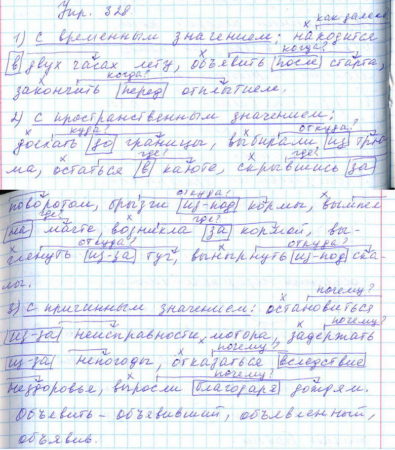 Упр. 328
как далеко?
1) с временным значением: находится
когда?
в двух часах лету, объявить после старта,
когда?
закончить перед отплытием.
2) с пространственным значением:
куда? откуда?
доехать до границы, выбирали из трю-
где? где?
ма, остаться в каюте, скрывшись за
откуда?
поворотом, брызги из-под кормы, вымпел
где? где?
на мачте, возникла за кормой, вы-
откуда? откуда?
глянуть из-за туч, вынырнуть из-под ска-
лы.
почему?
3) с причинным значением: остановиться
почему?
из-за неисправности мотора, задержать
почему?
из-за непогоды, отказаться вследствие
почему?
нездоровья, выросли благодаря дождям.
Объявить - объявивший, объявленный,
объявив.